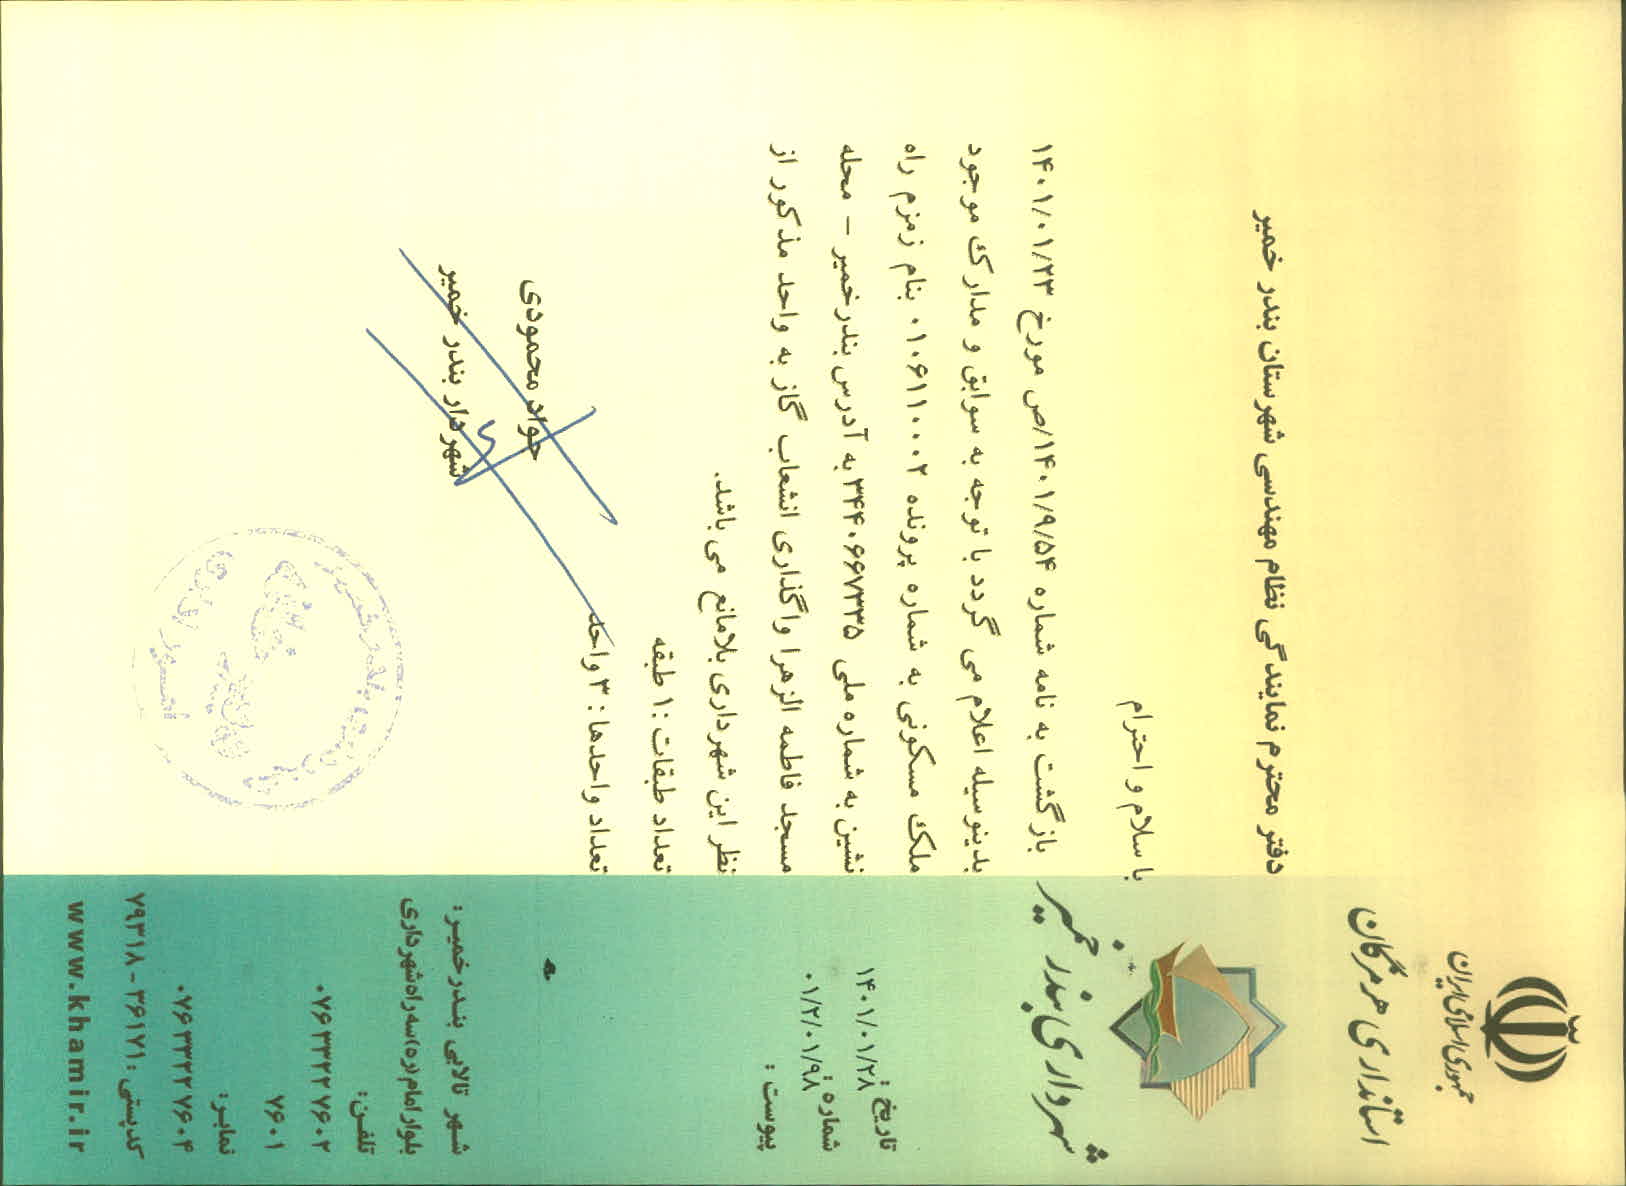 جمهوری اسلامی ایران
استانداری هرمزگان
شهرداری بندر خمیر
تاریخ : ۱۴۰۱/۰۱/۲۸
شماره : ۰۱/۲/۰۱/۹۸
پیوست :
دفتر محترم نمایندگی نظام مهندسی شهرستان بندر خمیر
با سلام و احترام
بازگشت به نامه شماره ۱۴۰۱/۹/۵۴/ص مورخ ۱۴۰۱/۰۱/۲۳
بدینوسیله اعلام می گردد با توجه به سوابق و مدارک موجود
ملک مسکونی به شماره پرونده ۰۱۰۶۱۱۰۰۰۲ بنام زمزم راه
نشین به شماره ملی ۳۴۴۰۶۶۷۳۳۵ به آدرس بندرخمیر – محله
مسجد فاطمه الزهرا واگذاری انشعاب گاز به واحد مذکور از
نظر این شهرداری بلامانع می باشد.
تعداد طبقات :۱ طبقه
تعداد واحدها : ۳ واحد
جواد محمودی
شهردار بندر خمیر
شهر تالابی بندرخمیر :
بلوار امام (ره) سه راه شهرداری
تلفن:
۰۷۶۳۳۲۲۷۶۰۲
۷۶۰۱
نمابر:
۰۷۶۳۳۲۲۷۶۰۴
کدپستی : ۳۶۱۷۱ - ۷۹۳۱۸
www.khamir.ir